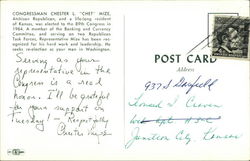 CONGRESSMAN CHESTER L. "CHET" MIZE,
Atchison Republican, and a life-long resident
of Kansas, was elected to the 89th Congress in
1964. A member of the Banking and Currency
Committee, and serving on two Republican
Task Forces, Representative Mize has been recognized
for his hard work and leadership. He
seeks re-election as your man in Washington.
Serving as your
Representative in the
Congress is a real
honor. I'll be grateful
for your support on
Tuesday! — Respectfully
Chester Mize
POST CARD
Address
Junction City, Kansas